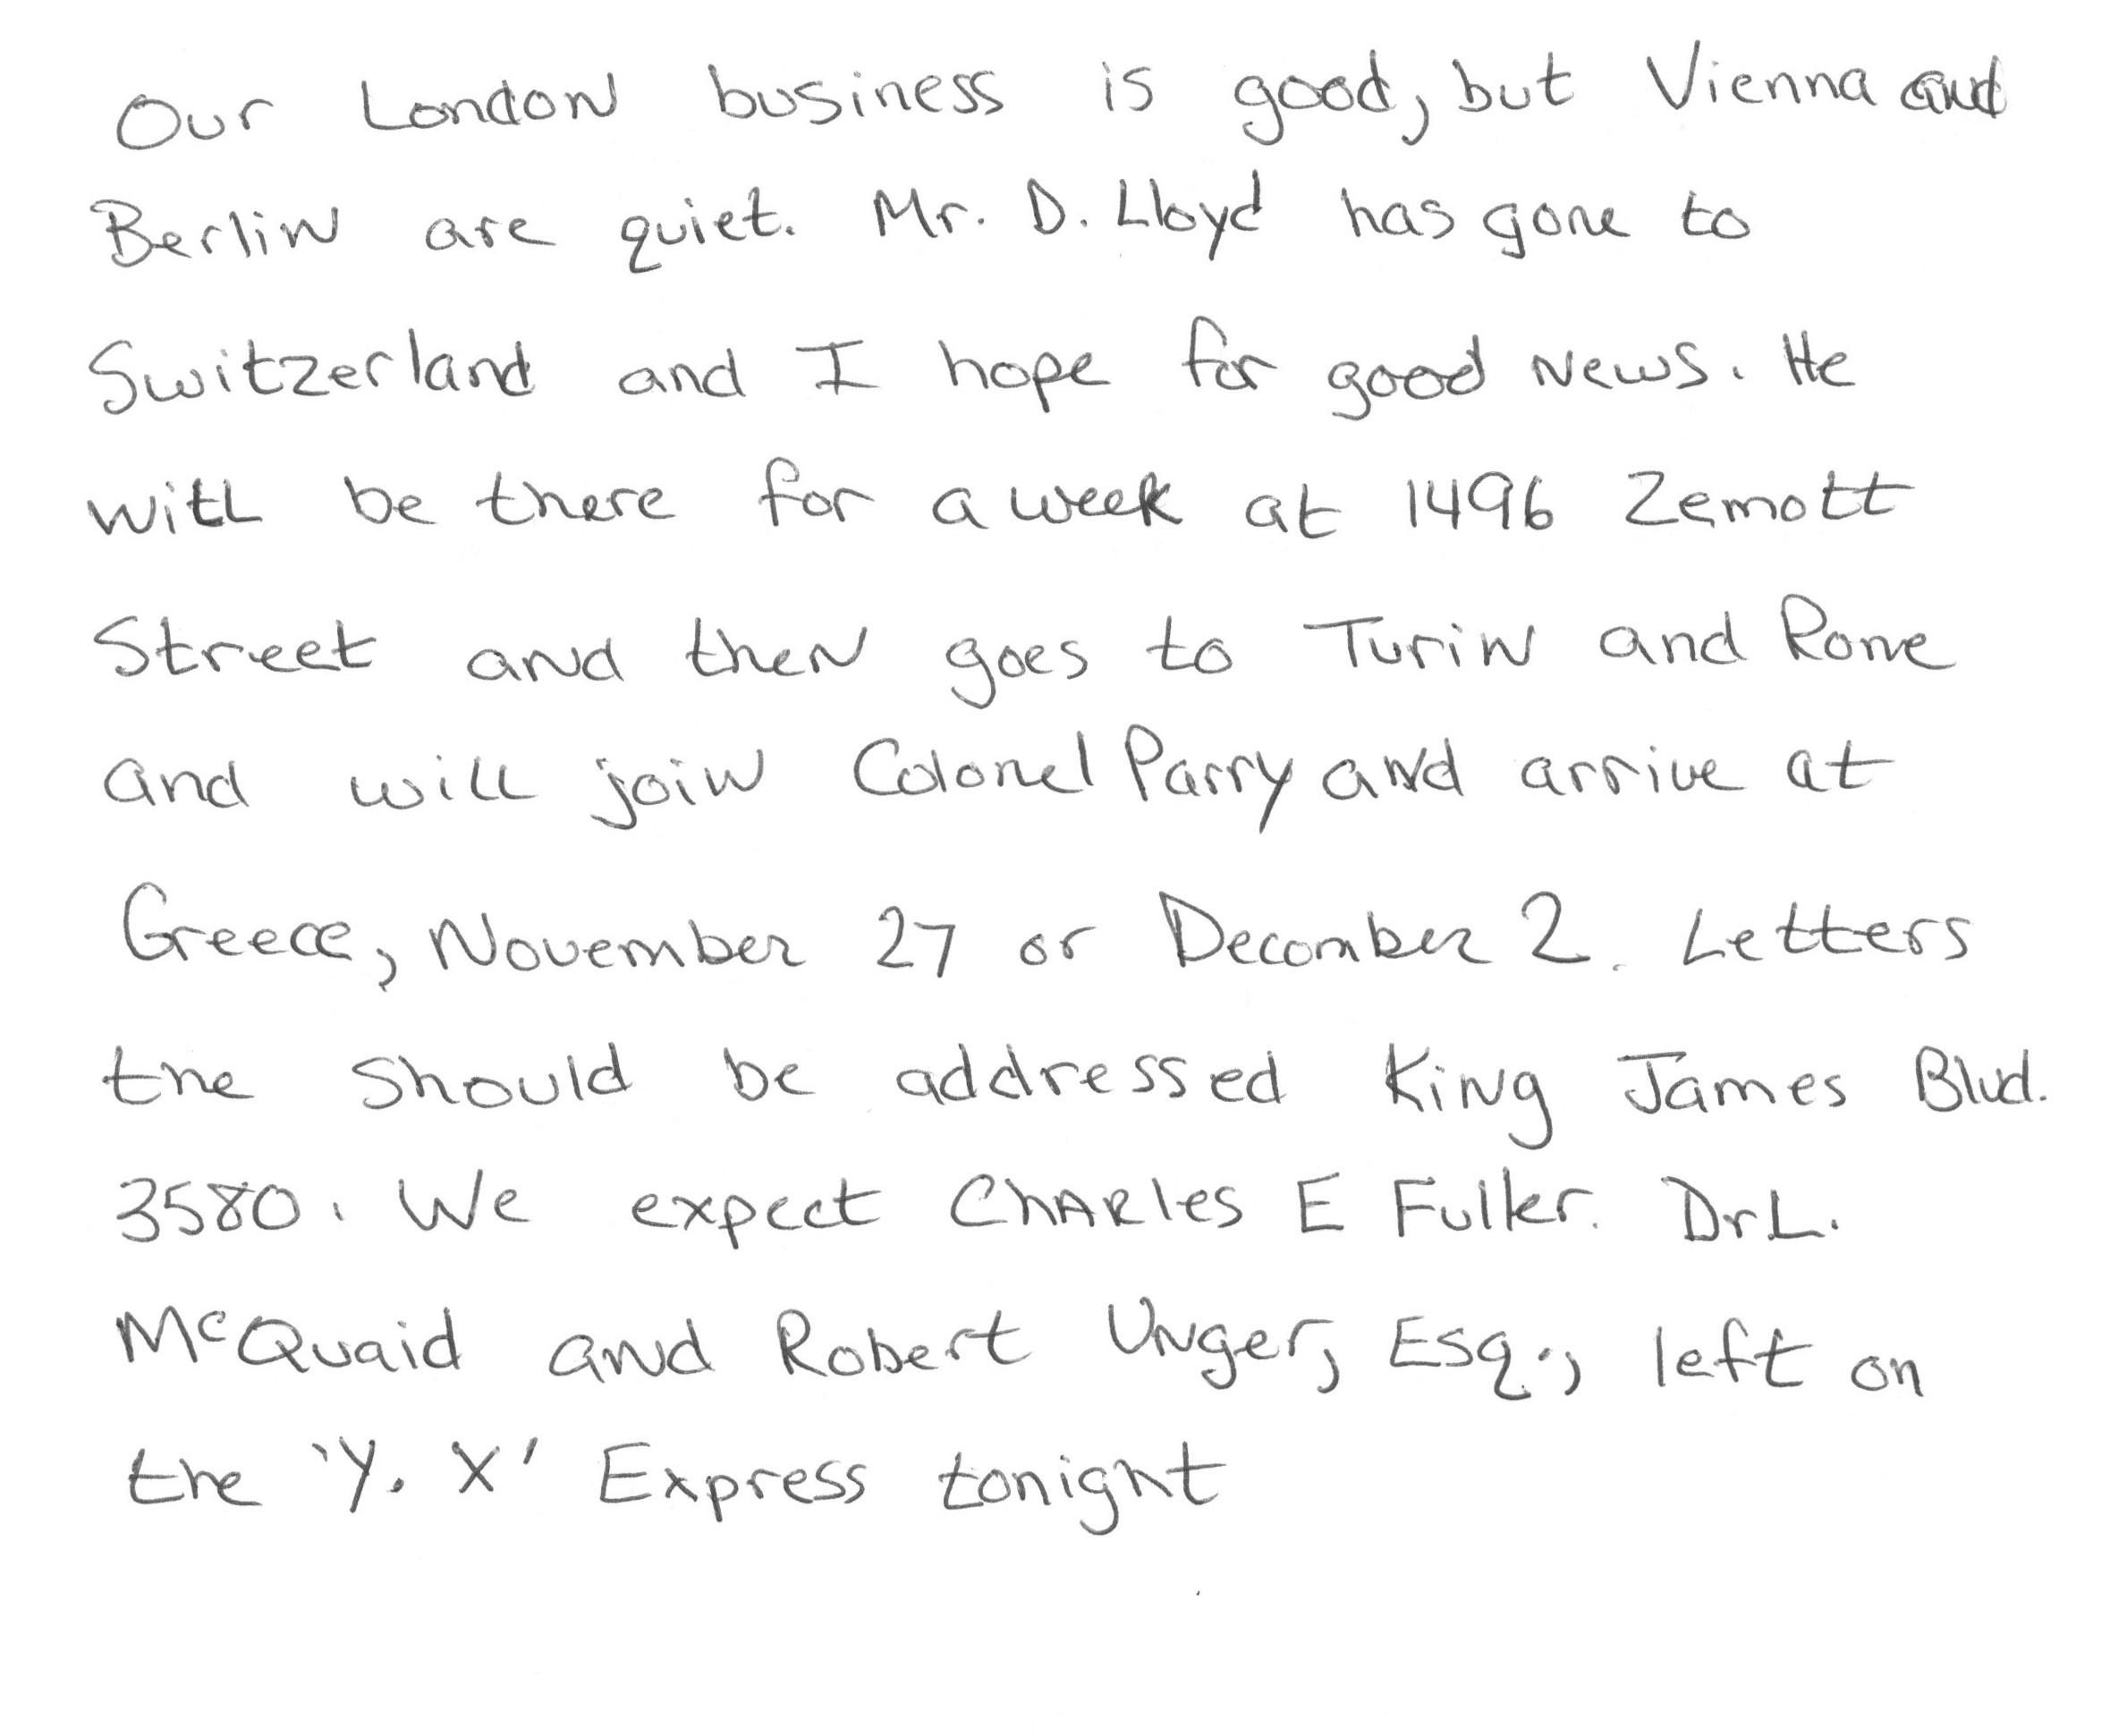 Our London business is good, but Vienna and
Berlin are quiet. Mr. D. Lloyd has gone to
Switzerland and I hope for good news. He
will be there for a week at 1496 Zemott
Street and then goes to Turin and Rome
and will join Colonel Parry and arrive at
Greece, November 27 or December 2. Letters
the should be addressed King James Blvd.
3580. We expect Charles E Fuller. Dr L.
McQuaid and Robert Unger, Esq., left on
the 'Y. X' Express tonight